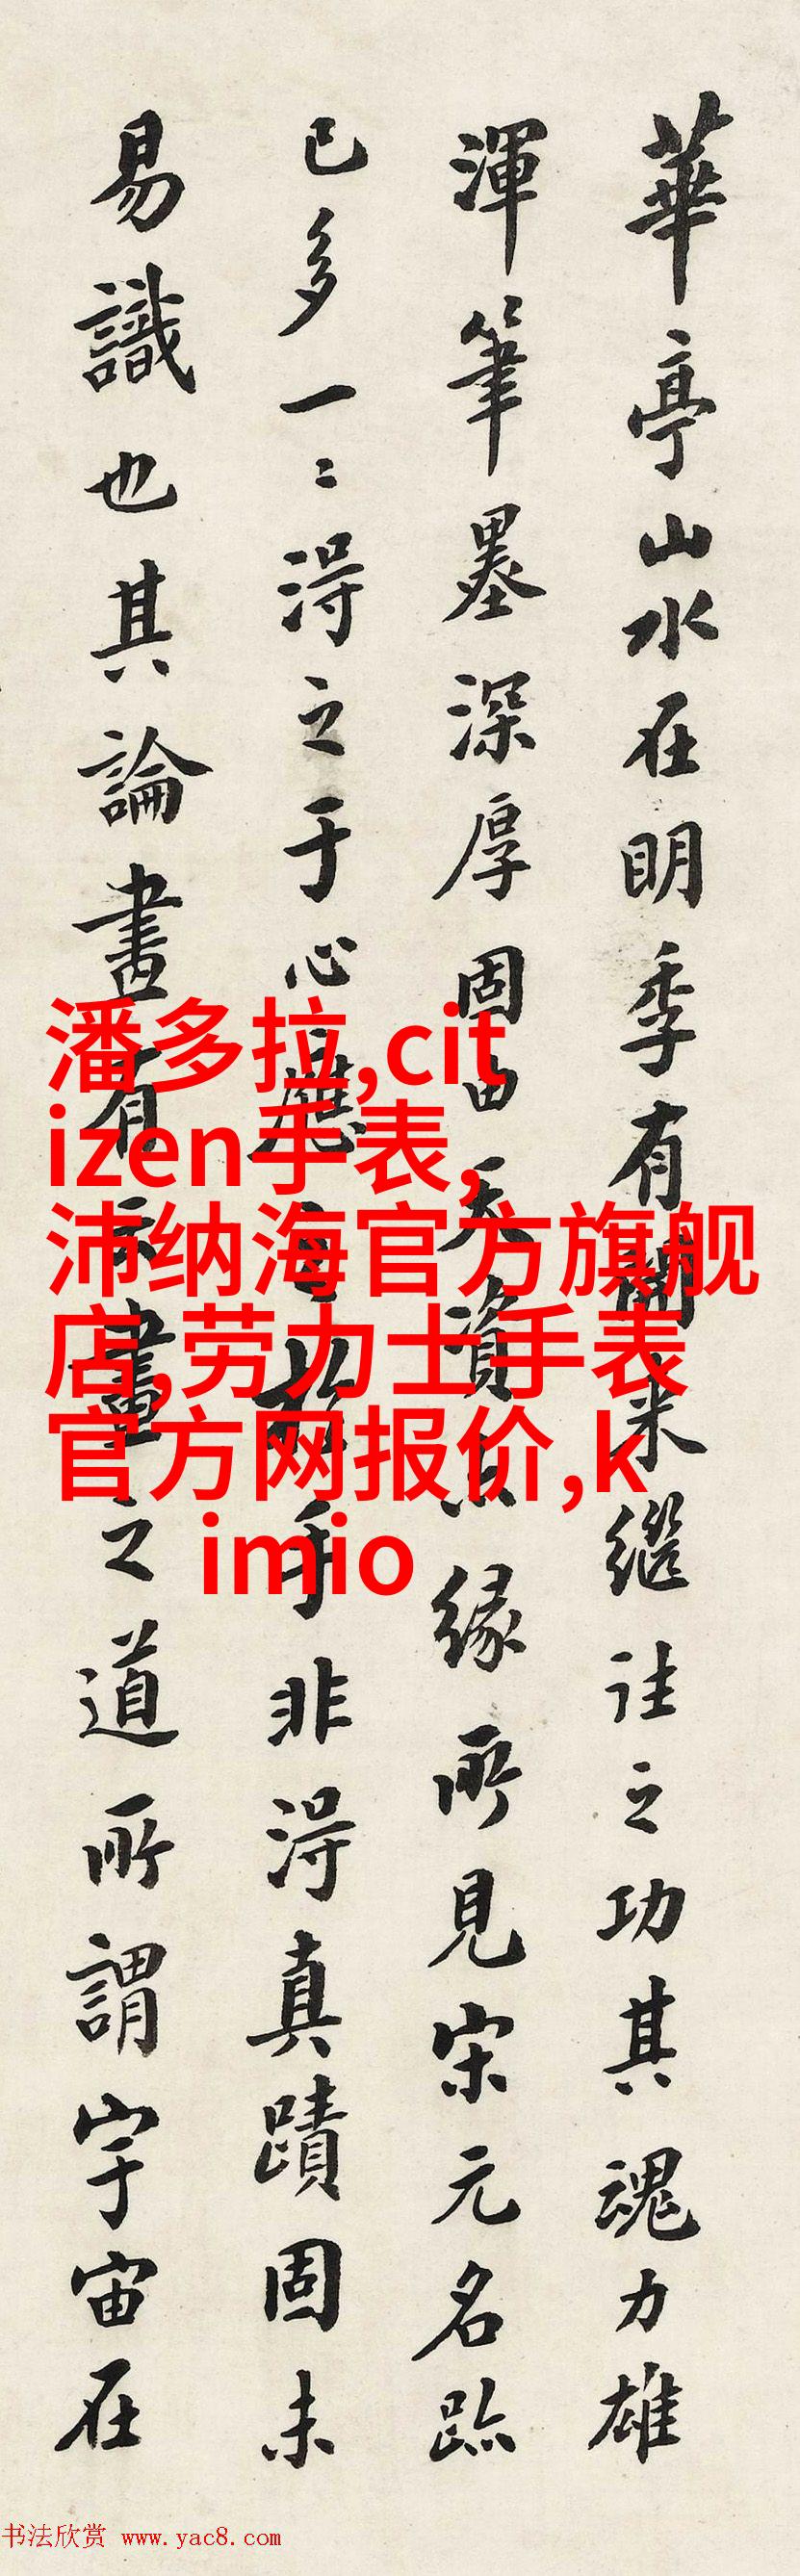 華亭山水在明季有開来繼往之功其魂力雄
渾筆墨深厚固由天資縁所見宋元名跡
已多一〻得之于心應於手非得真蹟固未
易識也其論畫有云畫之道所謂宇宙在
潘多拉,cit
izen手表,
沛纳海官方旗舰
店,劳力士手表
官方网报价,k
imio
书法欣赏 www.yac8.com